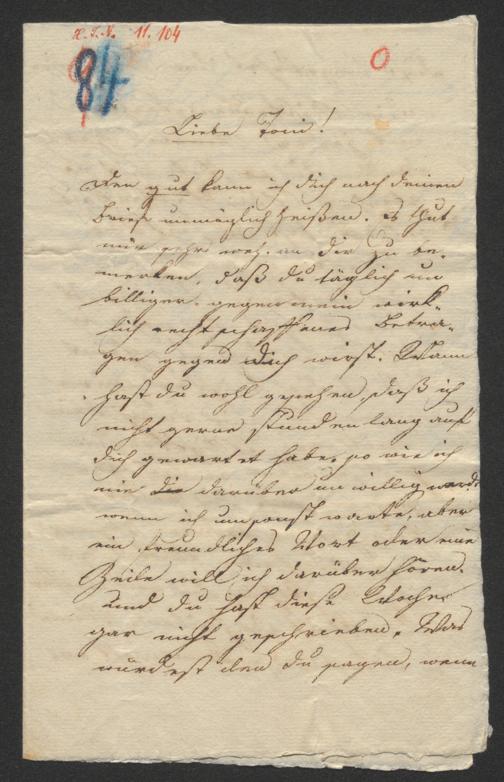 H.I.N. 11.104
84
O
Liebe Toni!
Den gut kann ich dich nach deinen
Brief unmöglich heißen. es thut
mir sehr weh. an dir zu be-
merken, daß du täglich un
billiger. gegen mein wirk-
lich rechtschaffenes Betra-
gen gegen dich wirst. Wann
hast du wohl gesehen, daß ich
nicht gerne stunden lang auf
dich gewartet habe. so wie ich
nie darüber unwillig werde
wenn ich umsonst warte, aber
ein freundliches Wort oder eine
Zeile will ich darüber hören.
und du hast diese Woche
gar nicht geschrieben. Was
würdest den du sagen, wenn